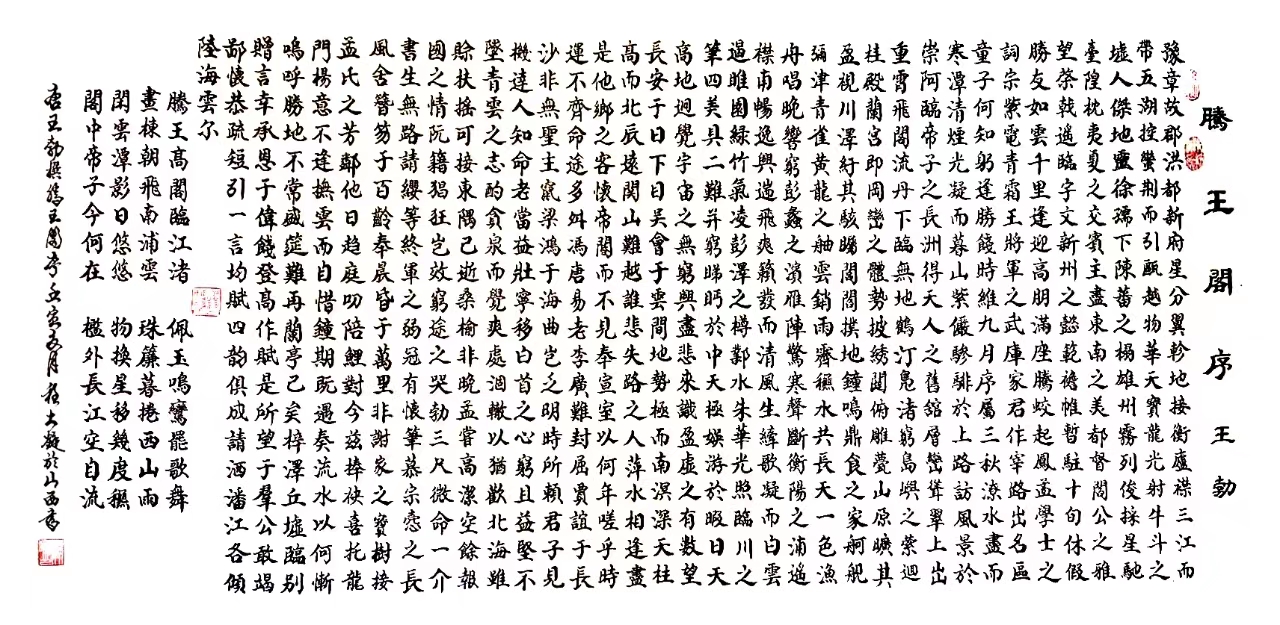 騰王閣序 王勃
豫章故郡洪都新府星分翼軫地接衡廬襟三江而
帶五湖控蠻荆而引甌越物華天寶龍光射牛斗之
墟人傑地靈徐孺下陳蕃之榻雄州霧列俊採星馳
臺隍枕夷夏之交賓主盡東南之美都督閻公之雅
望棨戟遥臨宇文新州之懿範襜帷暫駐十旬休假
勝友如雲千里逢迎高朋滿座騰蛟起鳳孟學士之
詞宗紫電青霜王將軍之武庫家君作宰路出名區
童子何知躬逢勝餞時維九月序屬三秋潦水盡而
寒潭清煙光凝而暮山紫儼驂騑於上路訪風景於
崇阿臨帝子之長洲得天人之舊館層巒聳翠上出
重霄飛閣流丹下臨無地鶴汀鳧渚窮島嶼之縈迴
桂殿蘭宫即岡巒之體勢披綉闥俯雕甍山原曠其
盈視川澤紆其駭矚閭閻撲地鐘鳴鼎食之家舸艦
彌津青雀黄龍之舳雲銷雨霽穐水共長天一色漁
舟唱晚響窮彭蠡之濱雁陣驚寒聲斷衡陽之浦遥
襟甫暢逸興遄飛爽籟發而清風生纖歌凝而白雲
遏睢園緑竹氣凌彭澤之樽鄴水朱華光照臨川之
筆四美具二難并窮睇眄於中天極娱游於暇日天
高地迥覺宇宙之無窮興盡悲來識盈虚之有數望
長安于日下目吴會于雲間地勢極而南溟深天柱
高而北辰遠関山難越誰悲失路之人萍水相逢盡
是他鄉之客懷帝閽而不見奉宣室以何年嗟乎時
運不齊命途多舛馮唐易老李廣難封屈賈誼于長
沙非無聖主竄梁鴻于海曲豈乏明時所賴君子見
機達人知命老當益壯寧移白首之心窮且益堅不
墜青雲之志酌貪泉而覺爽處涸轍以猶歡北海雖
賒扶摇可接東隅已逝桑榆非晚孟嘗高潔空餘報
國之情阮籍猖狂豈效窮途之哭勃三尺微命一介
書生無路請纓等終軍之弱冠有懷筆慕宗慤之長
風舍簪笏于百齡奉晨昏于萬里非謝家之寶樹接
孟氏之芳鄰他日趋庭叨陪鯉對今兹捧袂喜托龍
門楊意不逢撫雲而自惜鐘期既遇奏流水以何慚
嗚呼勝地不常盛筵難再蘭亭已矣梓澤丘墟臨别
贈言幸承恩于偉餞登高作賦是所望于羣公敢竭
鄙懷恭疏短引一言均賦四韵俱成請洒潘江各傾
陸海雲尔
騰王高閣臨江渚 佩玉鳴鸞罷歌舞
畫棟朝飛南浦雲 珠簾暮捲西山雨
閑雲潭影日悠悠 物換星移幾度穐
閣中帝子今何在 檻外長江空自流
唐王勃撰滕王閣序 五月 於山西書